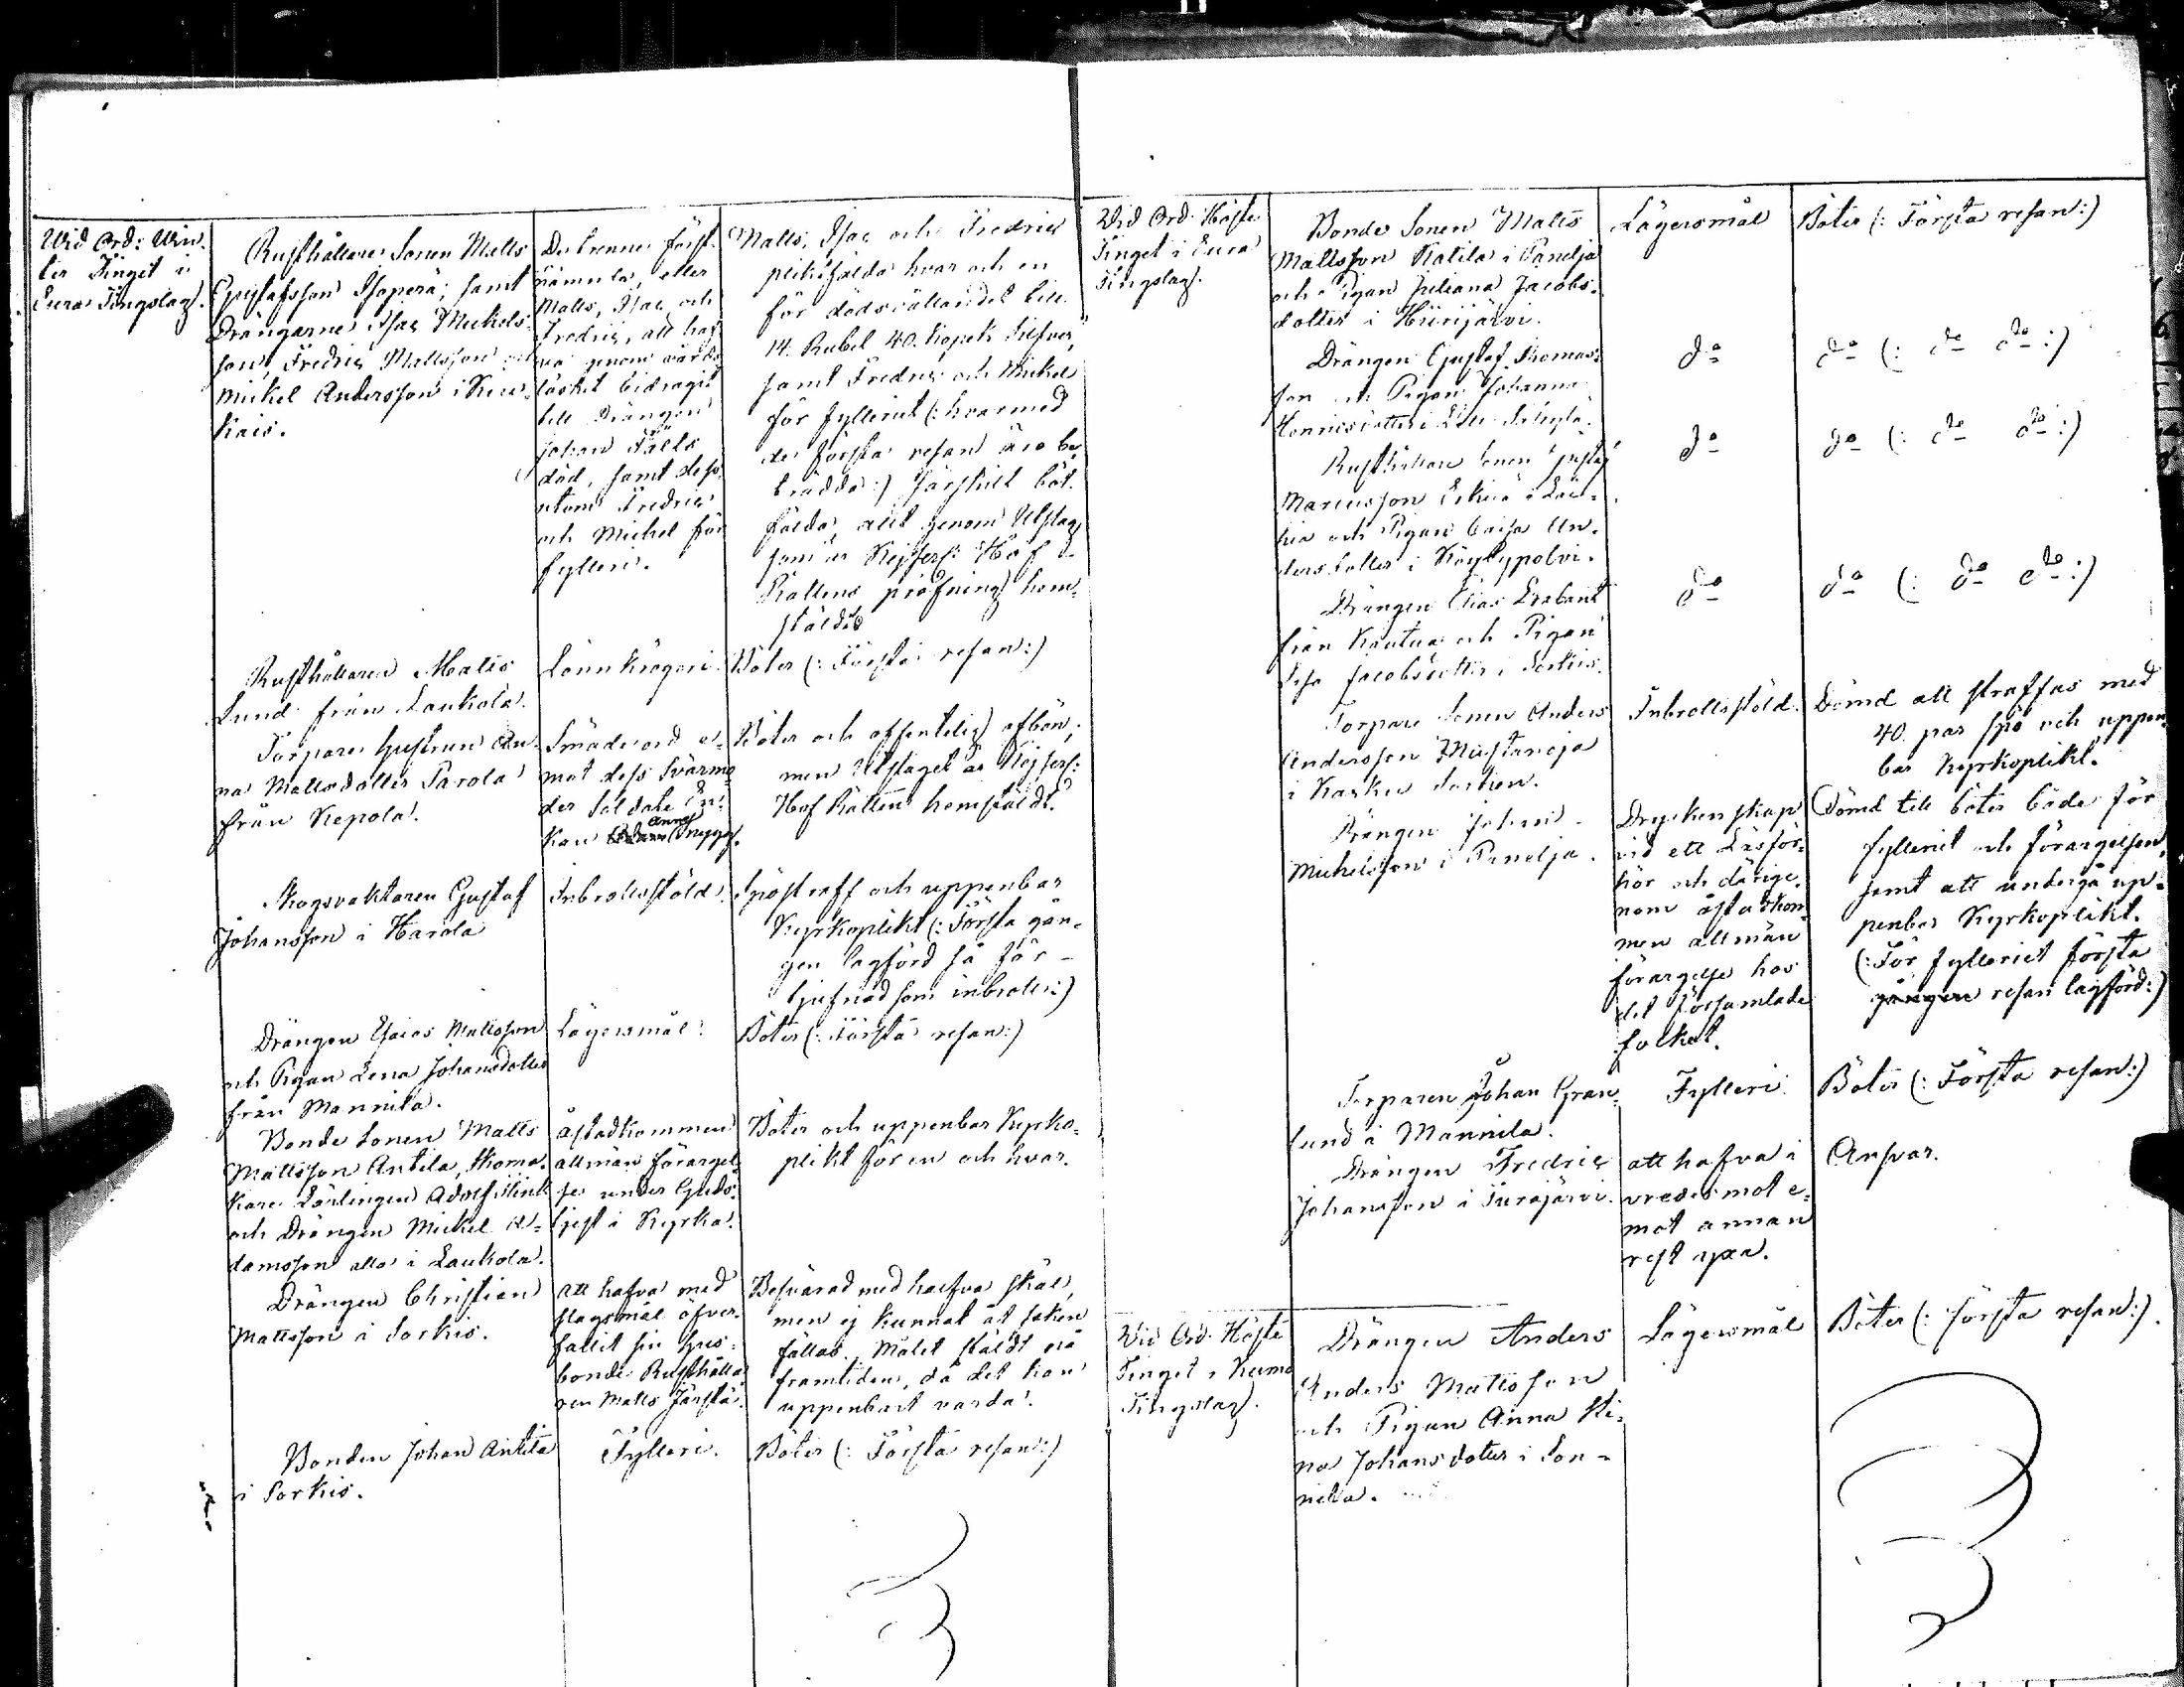 Wid Ord: Win-
ter Tinget i
Eura Tingslag.
Rusthållare Sonen Matts
Gustafsson Isoperä, samt
Drängarne Isac Mickels
son, Fredric Mattsson och
Mickel Andersson i
kais.
De trenne först-
nämnda, eller
Matts, Isac och
Fredric, att haf-
va genom vårds
löshet bidragit
till Drängen
Johan Fälts
död, samt dess
utom Fredric
och Michel för
fylleri.
Matts, Isac och Fredric
pliktfälda hvar och en
för dödsvållandet till
14. Rubel 40. Kopek Silfver,
samt Fredric och Mickel
för fylleriet (: hvarmed
de första resan äro be-
trädda :) särskilt böt-
fälda, allt genom Utslag
som är Kejserl: Hof-
Rättens pröfning hem-
stäldt
Rusthållaren Matts
Lund från Laukola.
Lönnkrögeri.
Böter (: Första resan :)
Torpare hustrun An-
na Mattsdotter Parola
från Kepola.
Smädeord e-
mot dess Svärmo-
der Soldats En-
kan Anna Snygg.
Böter och offentelig afbön;
men Utslaget är Kejserl:
Hof Rätten hemstäldt.
Skogsvaktaren Gustaf
Johansson i Harola
Inbrottsstöld.
Spöstraff och uppenbar
Kyrkoplikt (: Första gån-
gen lagförd så för-
tjufnad som inbrott :)
Drängen Esaias Mattsson
och Pigan Lena Johansdotter
från Mannila.
Lägersmål.
Böter (: Första resan :)
Bonde Sonen Matts
Mattsson Antila, Skoma-
kare Lärlingen Adolf
och Drängen Mickel A-
damsson alla i Laukola.
åstadkommen
allmän förargel-
se under Guds-
tjenst i Kyrka.
Böter och uppenbar Kyrko-
plikt för en och hvar.
Drängen Christian
Mattsson i Sorkis.
att hafva med
slagsmål öfver-
fallit sin hus-
bonde Rusthålla-
ren Matts Järstä.
Besvärad med halfva skäl,
men ej kunnat åt saken
fällas. Målet stäldt på
framtiden, då det kan
uppenbart varda.
Bonden Johan Antila
i Sorkis.
Fylleri.
Böter (: Första resan :)
Wid Ord: Höste
Tinget i Eura
Tingslag.
Bonde Sonen Matts
Mattsson Katila i Panelja
och Pigan Juliana Jacobs-
dotter i Hiirijärvi.
Lägersmål
Böter (: Första resan :)
Drängen Gustaf Thomas-
son och Pigan Johanna
Henricsdotter i
do
do (: do do :)
Rusthållare Sonen Gustaf
Marcusson Eskola i
och Pigan Caisa An-
dersdotter i Köylypolvi.
do
do (: do do :)
Drängen Elias Drabant
från Kauttua och Pigan
Lisa Jacobsdotter i Sorkis.
do
do (: do do :)
Torpare Sonen Anders
Andersson Mustaneja
i Karku Socken.
Inbrottsstöld.
Dömd att straffas med
40. par spö och uppen-
bar Kyrkoplikt.
Drängen Johan
Michelsson i Panelja.
Dryckenskap
vid ett Läsför-
hör och därige-
nom åstadkom-
men allmän
förargelse hos
det församlade
folket.
Dömd till böter både för
fylleriet och förargelsen,
samt att undergå up-
penbar Kyrkoplikt.
(: För fylleriet första
gången resan lagförd :)
Torparen Johan Gran-
lund i Mannila.
Fylleri.
Böter (: Första resan :)
Drängen Fredric
Johansson i Turajärvi.
att hafva i
vredesmot e-
mot annan
rest yxa.
Ansvar.
Wid Ord: Höste
Tinget i Kumo
Tingslag.
Drängen Anders
Anders Mattsson
och Pigan Anna Sti-
na Johansdotter i Son-
nila.
Lägersmål
Böter (: första resan :).